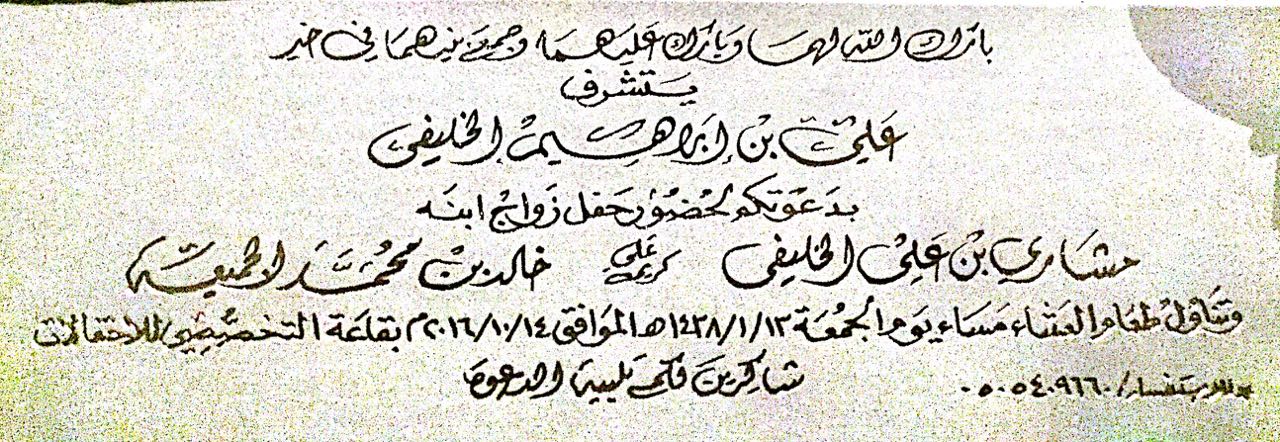 بارك الله لهما وبارك عليهما وجمع بينهما في خير
يتشرف
علي بن إبراهيم الخليفي
بدعوتكم لحضور حفل زواج ابنه
مشاري بن علي الخليفي على كريمة خالد بن محمد الجميعة
وتناول طعام العشاء مساء يوم الجمعة ١٤٣٨/١/١٣هـ الموافق ٢٠١٦/١٠/١٤م بقاعة التخصصي للاحتفالات
شاكرين لكم تلبية الدعوة
للاستفسار/٠٥٠٥٤٠٩٦٦٠